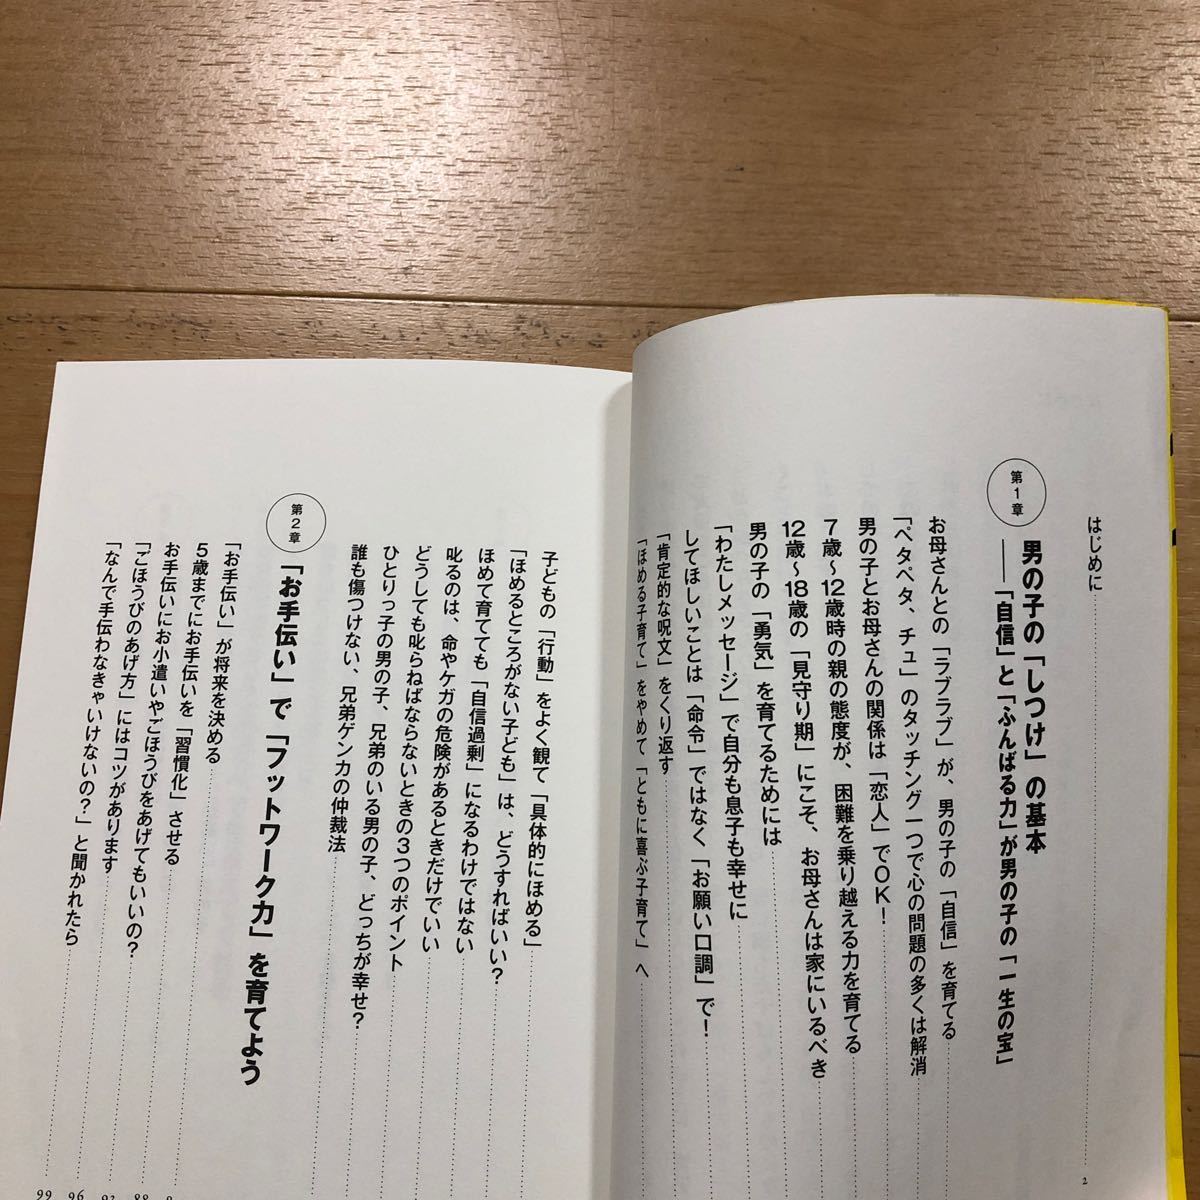 はじめに 2
第1章
男の子の「しつけ」の基本
――「自信」と「ふんばる力」が男の子の「一生の宝」
お母さんとの「ラブラブ」が、男の子の「自信」を育てる
「ペタペタ、チュ」のタッチング一つで心の問題の多くは解消
男の子とお母さんの関係は「恋人」でOK！
7歳〜12歳時の親の態度が、困難を乗り越える力を育てる
12歳〜18歳の「見守り期」にこそ、お母さんは家にいるべき
男の子の「勇気」を育てるためには
「わたしメッセージ」で自分も息子も幸せに
してほしいことは「命令」ではなく「お願い口調」で！
「肯定的な呪文」をくり返す
「ほめる子育て」をやめて「ともに喜ぶ子育て」へ
子どもの「行動」をよく観て「具体的にほめる」
「ほめるところがない子ども」は、どうすればいい？
ほめて育てても「自信過剰」になるわけではない
叱るのは、命やケガの危険があるときだけでいい
どうしても叱らねばならないときの3つのポイント
ひとりっ子の男の子、兄弟のいる男の子、どっちが幸せ？
誰も傷つけない、兄弟ゲンカの仲裁法
第2章
「お手伝い」で「フットワーク力」を育てよう
「お手伝い」が将来を決める
5歳までにお手伝いを「習慣化」させる 88
お手伝いにお小遣いやごほうびをあげてもいいの？
「ごほうびのあげ方」にはコツがあります 96
「なんで手伝わなきゃいけないの？」と聞かれたら 99